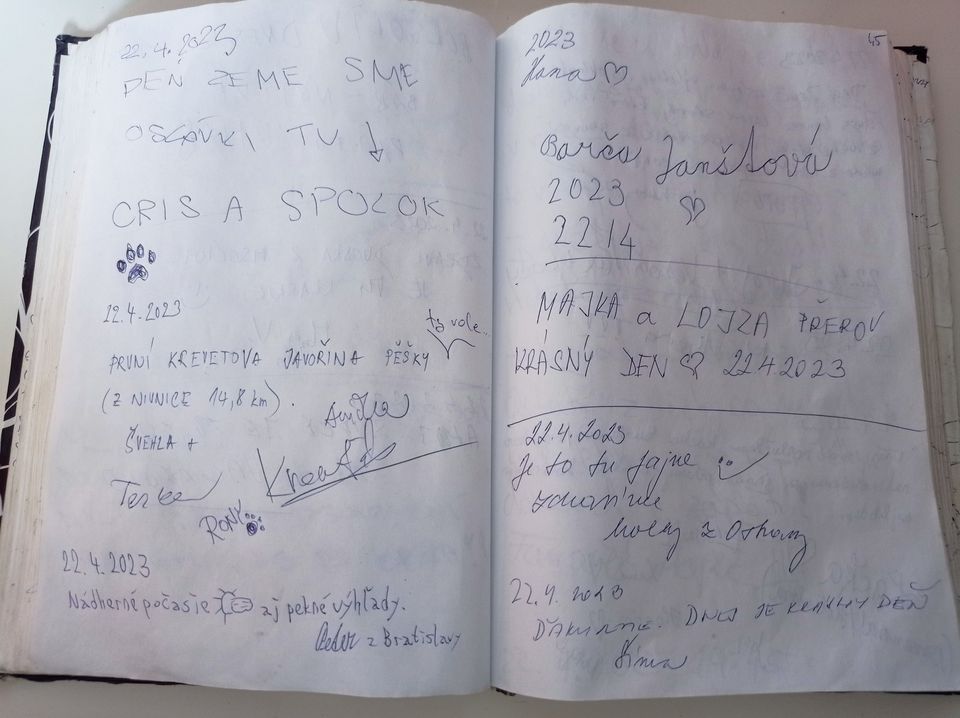 22.4.2023
DEŇ ZEME SME
OSLÁVILI TU
CRIS A SPOLOK
22.4.2023
ty vole..
PRVNÍ KREVETOVA JAVOŘINA PĚŠKY
(Z NIVNICE 14,8 km).
ŠVEHLA +
Terka
RONY
22.4.2023
Nádherné počasie aj pekné výhľady.
Peter z Bratislavy
45
2023
Hana
Barča Janštová
2023
22 14
MAJKA a LOJZA PŘEROV
KRÁSNÝ DEN 22.4.2023
22.4.2023
Je to tu fajne
zdravíme
z Ostravy
22.4.2023
ĎAKUJEME. DNES JE KRÁSNY DEŇ
Šima